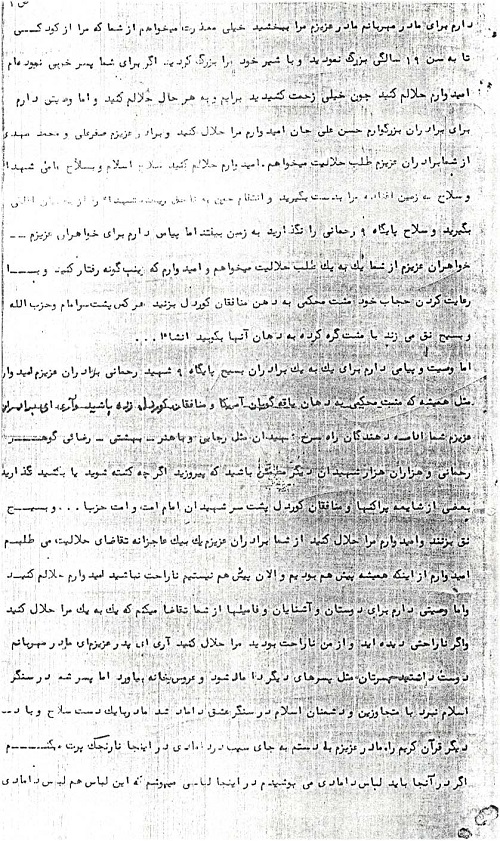 ص ۱
دارم برای مادر مهربانم مادر عزیزم مرا ببخشید خیلی معذرت میخواهم از شما که مرا از کودکسی
تا به سن ۱۹ سالگی بزرگ نمودید و با شیر خود مرا بزرگ کردید. اگر برای شما پسر خوبی نبودهام
امیدوارم حلالم کنید چون خیلی زحمت کشیدید برایم و به هر حال حلالم کنید و اما وصیتی دارم
برای برادران بزرگوارم حسن علی جان امیدوارم مرا حلال کنید و برادر عزیزم صفرعلی و محمد مهدی
از شما برادران عزیزم طلب حلالیت میخواهم. امیدوارم حلالم کنید سلاح اسلام و سلاح شهدا
و سلاح به زمین افتاده مرا بدست بگیرید و انتقام خون به ناحق ریخته شهدا را از
بگیرید و سلاح پایگاه ۹ رحمانی را نگذارید به زمین بیفتد اما پیامی دارم برای خواهران عزیزم ــ
خواهران عزیزم از شما یک به یک طلب حلالیت میخواهم و امیدوارم که زینب گونه رفتار کنید و بــا
رعایت کردن حجاب خود مشت محکمی به دهن منافقان کوردل بزنید هر کس پشت سر امام و حزب الله
و بسیج نق می زند با مشت گره کرده به دهان آنها بکوبید انشاءا ...
اما وصیت و پیامی دارم برای یك به یك برادران بسیج پایگاه ۹ شهید رحمانی برادران عزیزم امیدوار
مثل همیشه که مشت محکمی به دهان یاوه گویان آمریکا و منافقان کوردل زده باشید وآری ای برادران
عزیزم شما ادامه دهندگان راه سرخ شهیدان مثل رجایی و باهنر ــ بهشتی ــ رضائی گوهــــر
رحمانی و هزاران هزار شهیدان دیگر مطمئن باشید که پیروزید اگر چه کشته شوید یا بکشید نگذارید
بعضی از شایعه پراکنها و منافقان کوردل پشت سر شهیدان امام امت و امت حزبا ... و بسیــج
نق بزنند و امیدوارم مرا حلال کنید از شما برادران عزیزم یك بیك عاجزانه تقاضای حلالیت می طلبـم
امیدوارم از اینکه همیشه پیش هم بودیم و الان پیش هم نیستیم ناراحت نباشید امیدوارم حلالم کنیـد
واما وصیتی دارم برای دوستان و آشنایان و فامیلها از شما تقاضا میکنم که یك به یك مرا حلال کنید
واگر ناراحتی دیده اید و از من ناراحت بودید مرا حلال کنید آری ای پدر عزیزم ای مادر مهربانم
دوست داشتید پسرتان مثل پسرهای دیگر داماد شود و عروس بخانه بیاورد اما پسر شما در سنگر
اسلام نبرد با متجاوزین و دشمنان اسلام در سنگر عشق داماد شد مادر با یك دست سلاح و با دــ
دیگر قرآن کریم را، مادر عزیزم به دستم به جای سیب در دامادی در اینجا نارنجك پرت میکنــــم
اگر در آنجا باید لباس دامادی می پوشیدم در اینجا لباسی میپوشم که این لباس هم لباس دامادی